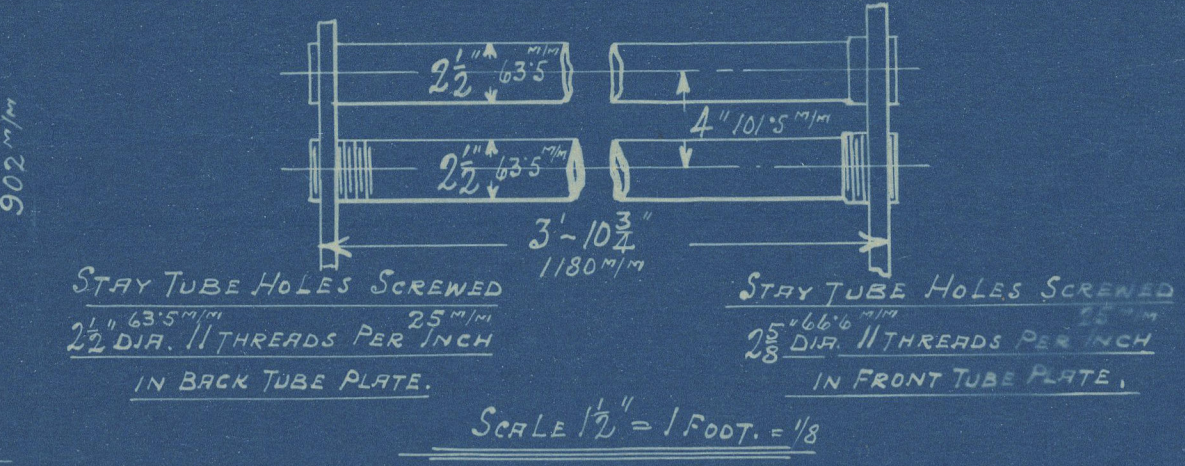 902 M/M
2 1/2" 63·5 M/M
4" 101·5 M/M
2 1/2" 63·5 M/M
3'-10 3/4"
1180 M/M
STAY TUBE HOLES SCREWED
2 1/2" 63·5 M/M DIA. 11 THREADS PER 25 M/M INCH
IN BACK TUBE PLATE.
STAY TUBE HOLES SCREWED
2 5/8" 66·6 M/M DIA. 11 THREADS PER 25 M/M INCH
IN FRONT TUBE PLATE.
SCALE 1 1/2" = 1 FOOT. = 1/8